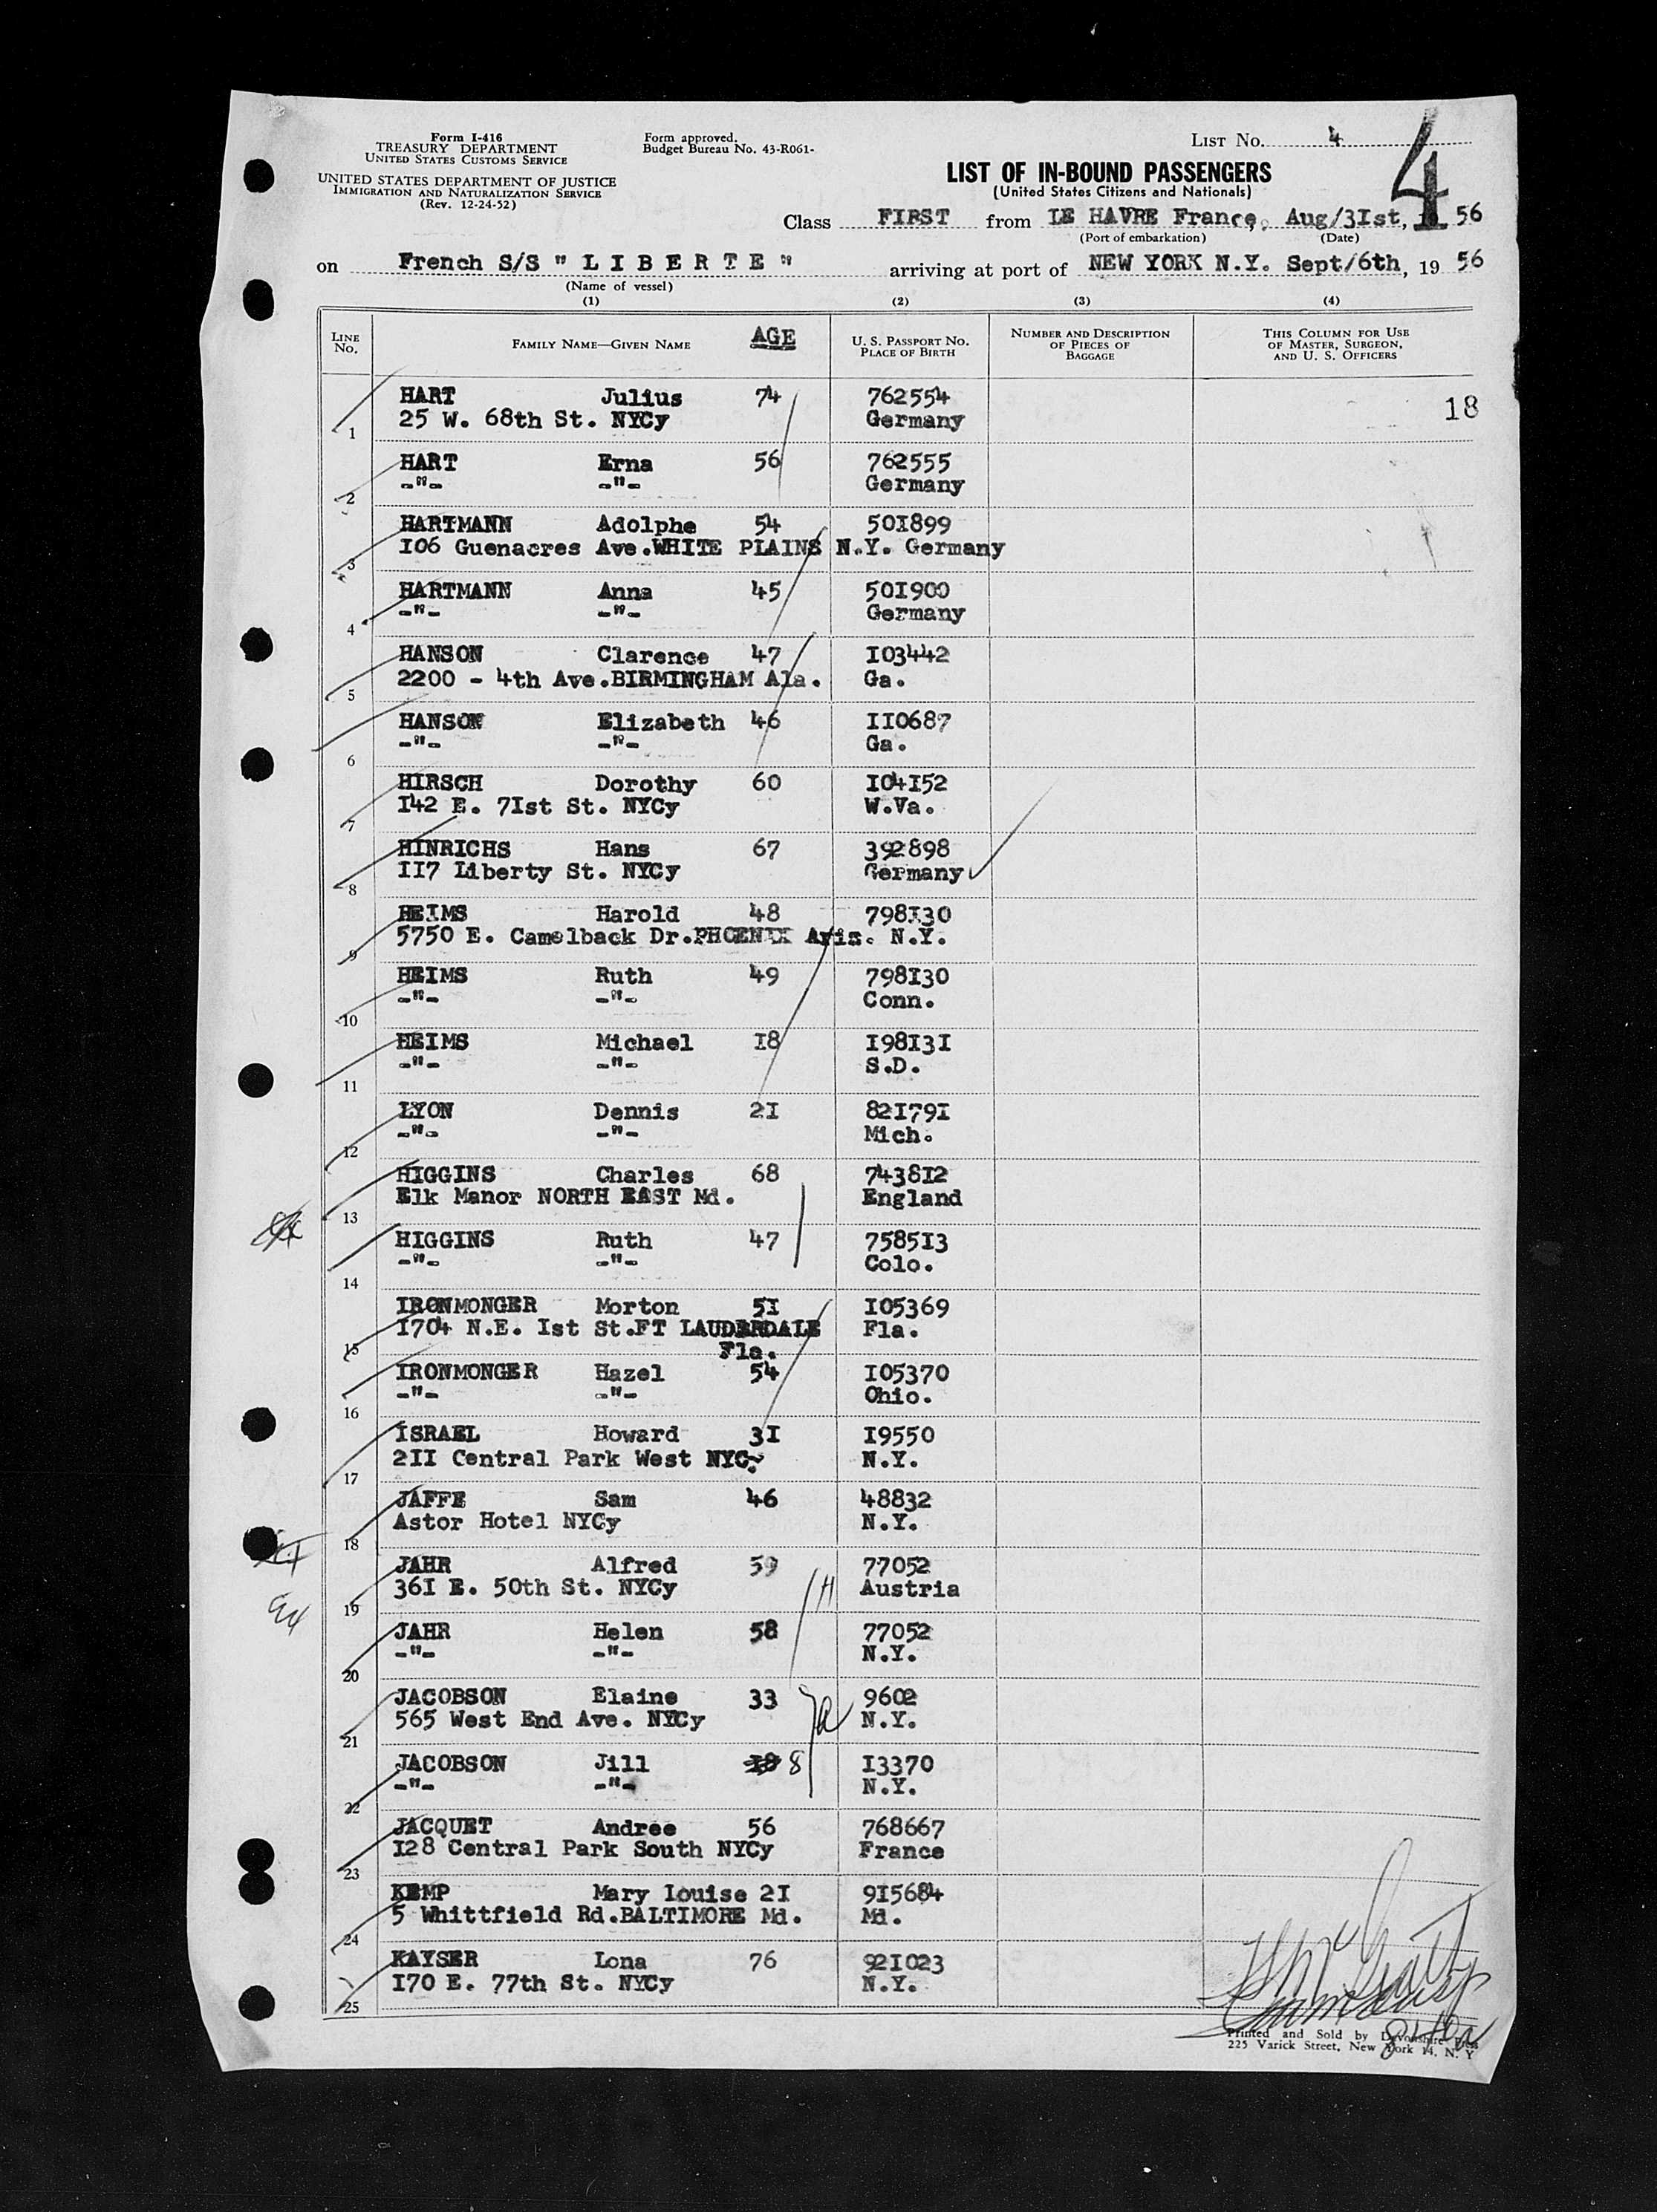 Form I-416
TREASURY DEPARTMENT
UNITED STATES CUSTOMS SERVICE
UNITED STATES DEPARTMENT OF JUSTICE
IMMIGRATION AND NATURALIZATION SERVICE
(Rev. 12-24-52)
Form approved.
Budget Bureau No. 43-R061-
LIST No. 4
4
LIST OF IN-BOUND PASSENGERS
(United States Citizens and Nationals)
Class FIRST from LE HAVRE France, Aug/3Ist, 56
(Port of embarkation) (Date)
on French S/S " L I B E R T E " arriving at port of NEW YORK N.Y. Sept/6th, 19 56
(Name of vessel)
(1) (2) (3) (4)
LINE No. FAMILY NAME—GIVEN NAME AGE U. S. PASSPORT No. PLACE OF BIRTH NUMBER AND DESCRIPTION OF PIECES OF BAGGAGE THIS COLUMN FOR USE OF MASTER, SURGEON, AND U. S. OFFICERS
HART Julius 74 762554 18
1 25 W. 68th St. NYCy Germany
HART Erna 56 762555
2 -"- -"- Germany
HARTMANN Adolphe 54 50I899
3 I06 Guenacres Ave.WHITE PLAINS N.Y. Germany
HARTMANN Anna 45 50I900
4 -"- -"- Germany
HANSON Clarence 47 I03442
5 2200 - 4th Ave.BIRMINGHAM Ala. Ga.
HANSON Elizabeth 46 II0687
6 -"- -"- Ga.
HIRSCH Dorothy 60 I04I52
7 I42 E. 7Ist St. NYCy W.Va.
HINRICHS Hans 67 392898
8 II7 Liberty St. NYCy Germany
HEIMS Harold 48 798I30
9 5750 E. Camelback Dr.PHOENIX Ariz. N.Y.
HEIMS Ruth 49 798I30
10 -"- -"- Conn.
HEIMS Michael I8 I98I3I
11 -"- -"- S.D.
LYON Dennis 2I 82I79I
12 -"- -"- Mich.
HIGGINS Charles 68 7438I2
13 Elk Manor NORTH EAST Md. England
HIGGINS Ruth 47 7585I3
14 -"- -"- Colo.
IRONMONGER Morton 5I I05369
15 I704 N.E. Ist St.FT LAUDERDALE Fla.
Fla.
IRONMONGER Hazel 54 I05370
16 -"- -"- Ohio.
ISRAEL Howard 3I I9550
17 2II Central Park West NYC. N.Y.
JAFFE Sam 46 48832
18 Astor Hotel NYCy N.Y.
JAHR Alfred 59 77052
19 36I E. 50th St. NYCy H Austria
JAHR Helen 58 77052
20 -"- -"- N.Y.
JACOBSON Elaine 33 9602
21 565 West End Ave. NYCy N.Y.
JACOBSON Jill I8 8 I3370
22 -"- -"- N.Y.
JACQUET Andree 56 768667
23 I28 Central Park South NYCy France
KEMP Mary Louise 2I 9I5684
24 5 Whittfield Rd.BALTIMORE Md. Md.
KAYSER Lona 76 92I023
25 I70 E. 77th St. NYCy N.Y.
Printed and Sold by Devonshire Press
225 Varick Street, New York 14, N. Y